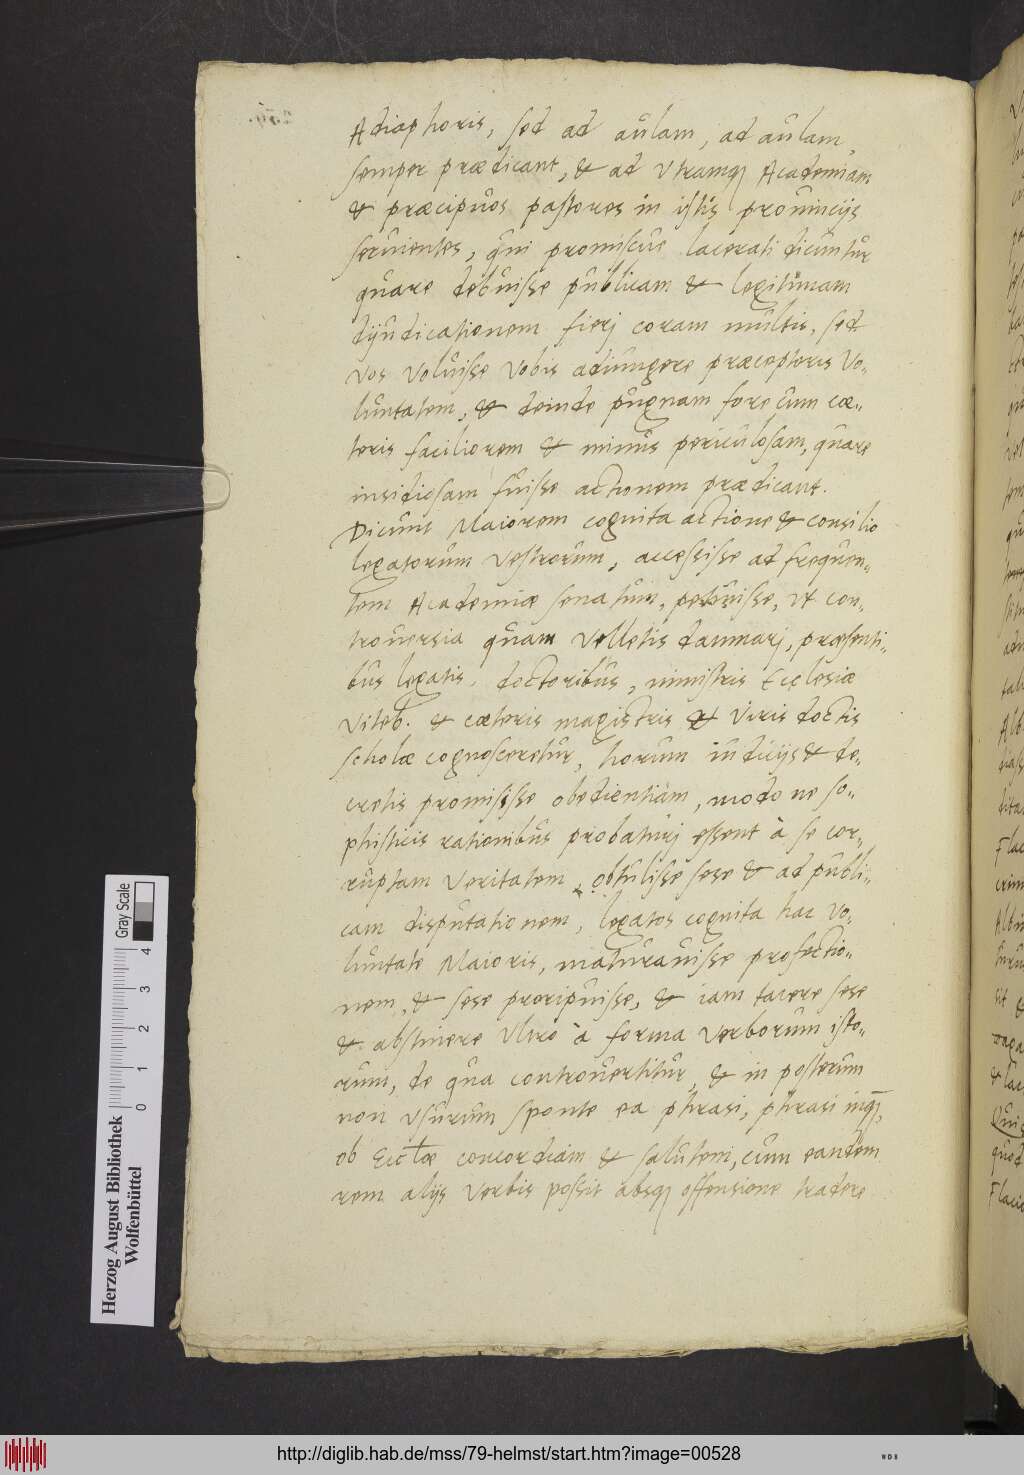 Adiaphoris, sed ad aulam, ad aulam,
semper prædicant, & ad Vtramq Academiam
& præcipuos pastores in istis prouincijs
seruientes, qui promiscue lacerati dicuntur
quare debuisse publicam & legitimam
dijudicationem fierj coram multis, sed
vos voluisse vobis adiungere præceptoris vo„
luntatem, & deinde pugnam fore cum cæ„
teris faciliorem & minus periculosam, quare
insidiosam fuisse actionem prædicant.
Dicunt Maiorem cognita actione & consilio
legatorum vestrorum, accessisse ad frequen„
tem Academiæ senatum, petuisse, vt con„
trouersia quam velletis damnarj, præsenti„
bus legatis, doctoribus, ministris Ecclesiæ
Viteb. & cæteris magistris & viris doctis
scholæ cognosceretur, horum iudicijs & de„
cretis promisisse obedientiam, modo ne so„
phisticis rationibus probaturj essent à se cor„
ruptam veritatem, obtulisse sese & ad publi„
cam disputationem, legatos cognita hac vo„
luntate Maioris, maturauisse profectio„
nem, & sese proripuisse, & iam tacere sese
& abstinere vltro à forma verborum isto„
rum, de qua controuertitur, & in posterum
non vsurum sponte ea phrasi, phrasi inq,
ob Eccłæ concordiam & salutem, cum eandem
rem alijs verbis possit absq offensione tradere
Herzog August Bibliothek
Wolfenbüttel
0 1 2 3 4
Gray Scale
http://diglib.hab.de/mss/79-helmst/start.htm?image=00528
WDB